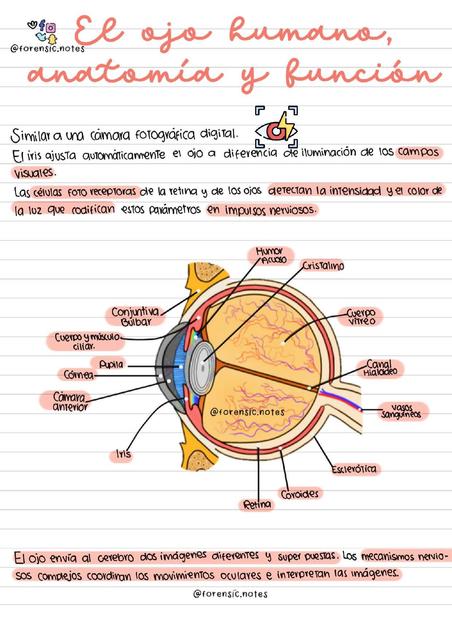 @forensic.notes
El ojo humano,
anatomía y función
Similar a una cámara fotográfica digital.
El iris ajusta automáticamente el ojo a diferencia de iluminación de los campos
visuales.
Las células foto receptoras de la retina y de los ojos detectan la intensidad y el color de
la luz que codifican estos parámetros en impulsos nerviosos.
Humor
Acuoso
Cristalino
Conjuntiva
Bulbar
Cuerpo
vitreo
Cuerpo y músculo
ciliar.
Pupila
Canal
Hialodeo
Córnea
Cámara
anterior
@forensic.notes
vasos
sanguineos
Iris
Esclerótica
Coroides
Retina
El ojo envía al cerebro dos imágenes diferentes y super puestas. Los mecanismos nervio-
sos complejos coordinan los movimientos oculares e interpretan las imágenes.
@forensic.notes